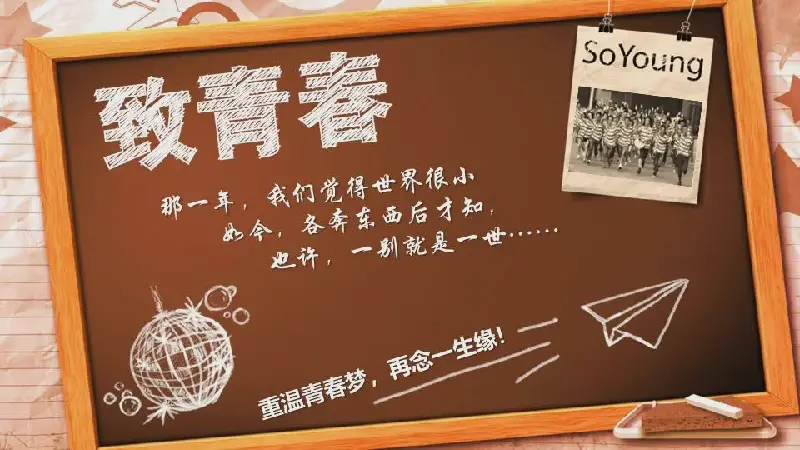 致青春
SoYoung
那一年，我们觉得世界很小
如今，各奔东西后才知，
也许，一别就是一世……
重温青春梦，再念一生缘！